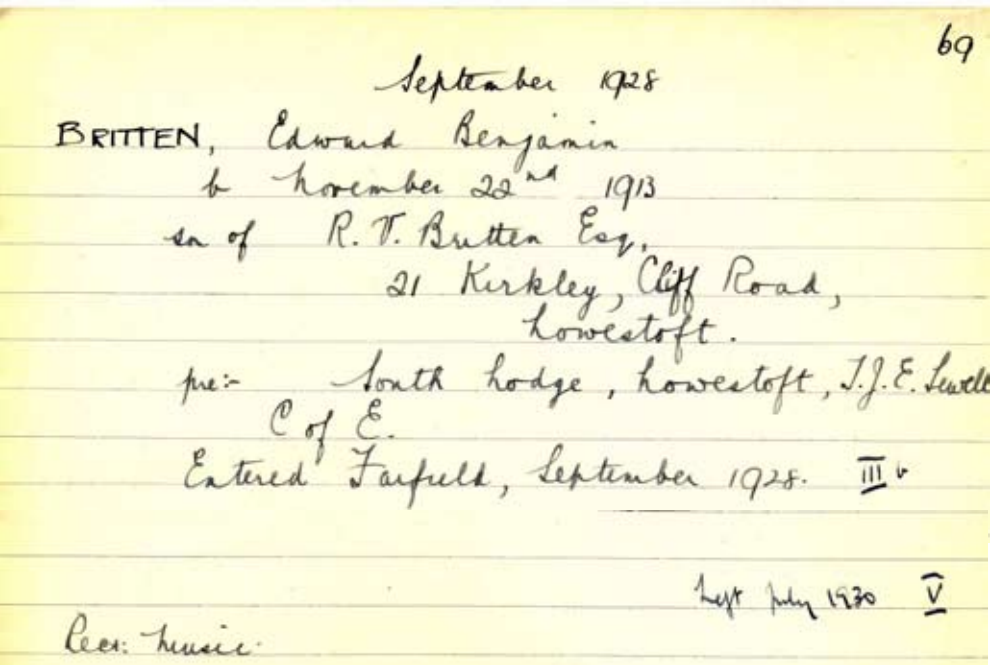 69
September 1928
BRITTEN, Edward Benjamin
b November 22nd 1913
son of R.V. Britten Esq,
21 Kirkley, Cliff Road,
Lowestoft.
pre:- South Lodge, Lowestoft, T.J.E. Sewell
C of E.
Entered Farfield, September 1928. III b
Left July 1930 V
music.